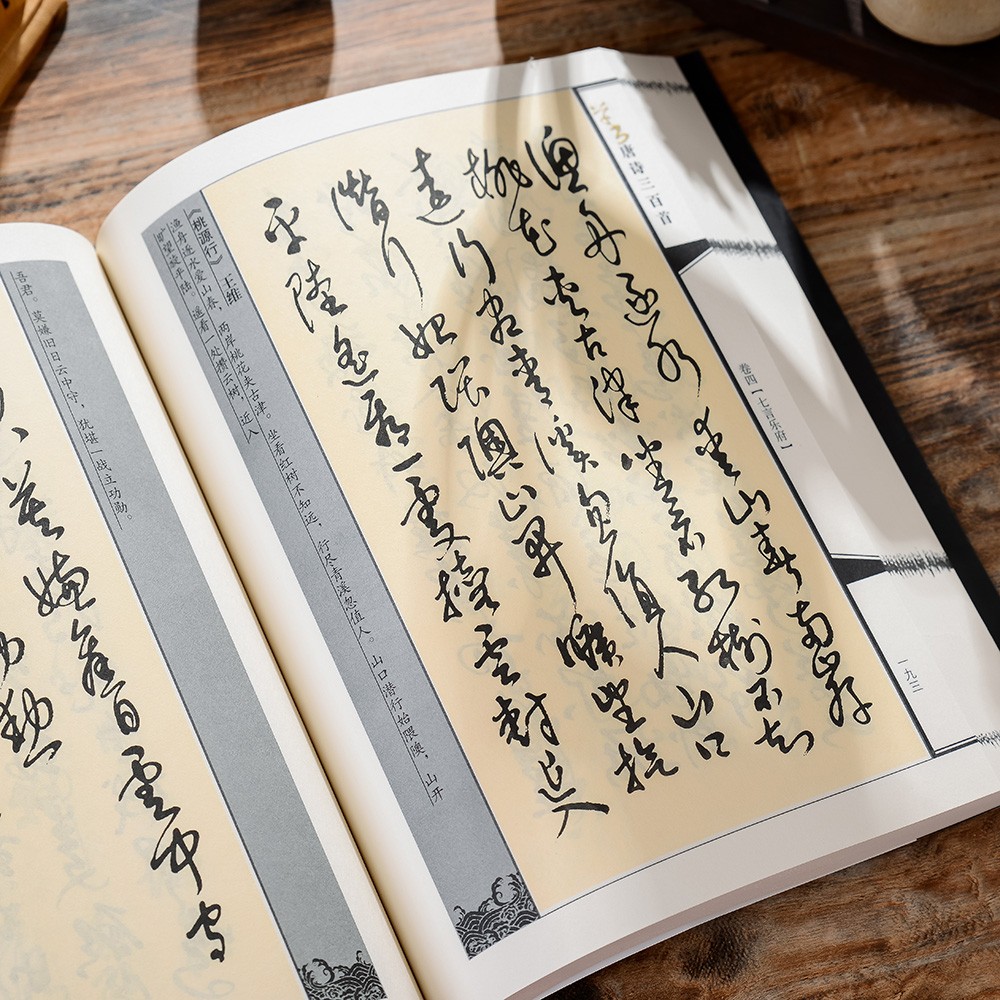 唐诗三百首
卷四【七言乐府】
一九三
渔舟逐水爱山春两岸
桃花夹古津坐看红树不知
远行尽青溪忽值人山口
潜行始隈隩山开旷望旋
平陆遥看一处攒云树近入
《桃源行》 王维
渔舟逐水爱山春,两岸桃花夹古津。坐看红树不知远,行尽青溪忽值人。山口潜行始隈隩,山开
旷望旋平陆。遥看一处攒云树,近入
莫嫌旧日云中守
功勋
吾君。莫嫌旧日云中守,犹堪一战立功勋。